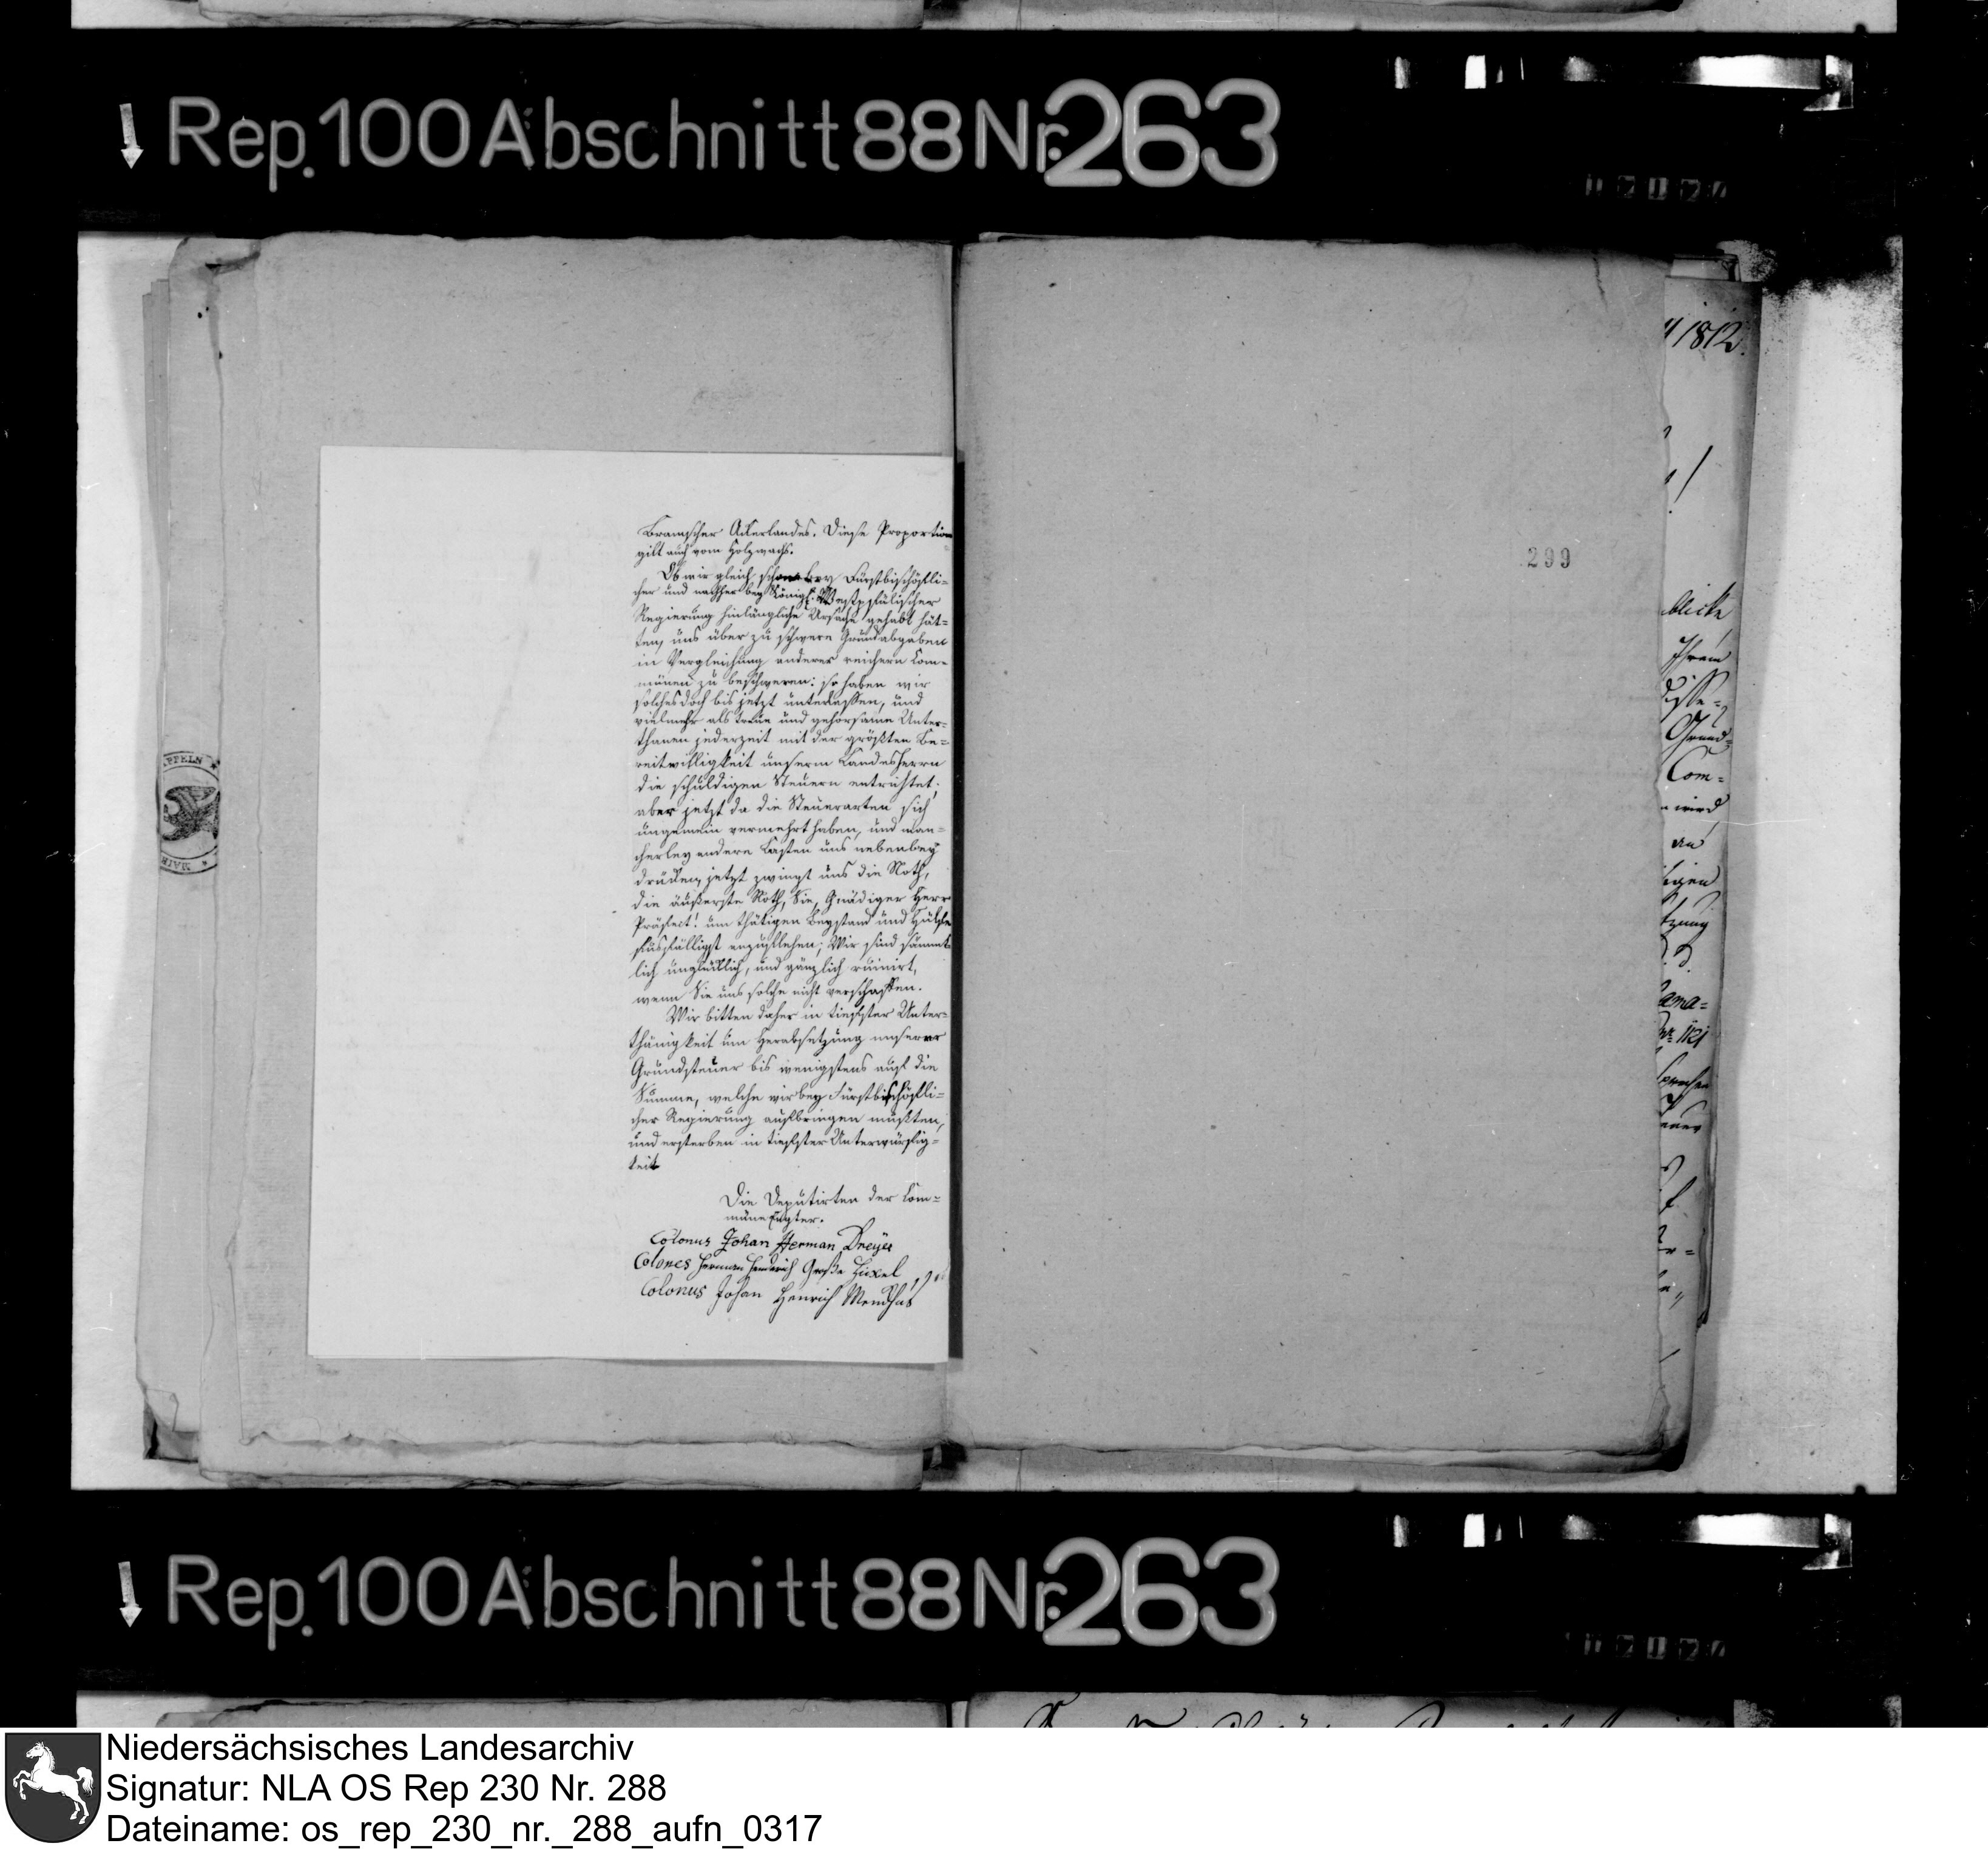 Rep. 100 Abschnitt 88 Nr. 263
Bramscher Ackerlandes. Diese Proportion
gilt auch vom Holzwachs.
Ob wir gleich schon bey Fürstbischöfli-
cher und nachher bey Königl. Westphälischer
Regierung hinlängliche Ursache gehabt hät-
ten, uns über zu schwere Grundabgaben
in Vergleichung anderer reichern Com-
münen zu beschweren: so haben wir
solches doch bis jetzt unterlassen, und
vielmehr als treue und gehorsame Unter-
thanen jederzeit mit der größten Be-
reitwilligkeit unserm Landesherrn
die schuldigen Steuern entrichtet;
aber jetzt da die Steuerarten sich
ungemein vermehrt haben, und man-
cherley andere Lasten uns nebenbey
drücken, jetzt zwingt uns die Noth,
die äußerste Noth, Sie, Gnädiger Herr
Präfect! um thätigen Beystand und Hülfe
fußfälligst anzuflehen; Wir sind sämmt-
lich unglücklich, und gänzlich ruinirt,
wenn Sie uns solche nicht verschaffen.
Wir bitten daher in tiefster Unter-
thänigkeit um Herabsetzung unserer
Grundsteuer bis wenigstens auf die
Summe, welche wir bey Fürstbischöfli-
cher Regierung aufbringen mußten,
und ersterben in tiefster Unterwürfig-
keit
Die Deputirten der Com-
müne Engter.
Colonus Johan Herman Dreyer
Colones Herman Henderich Große Hüxel
Colonus Johan Henrich Wendhus
299
1812.
blicke
Ihrem
Grund-
Com-
wird
an
Rep. 100 Abschnitt 88 Nr. 263
Niedersächsisches Landesarchiv
Signatur: NLA OS Rep 230 Nr. 288
Dateiname: os_rep_230_nr._288_aufn_0317